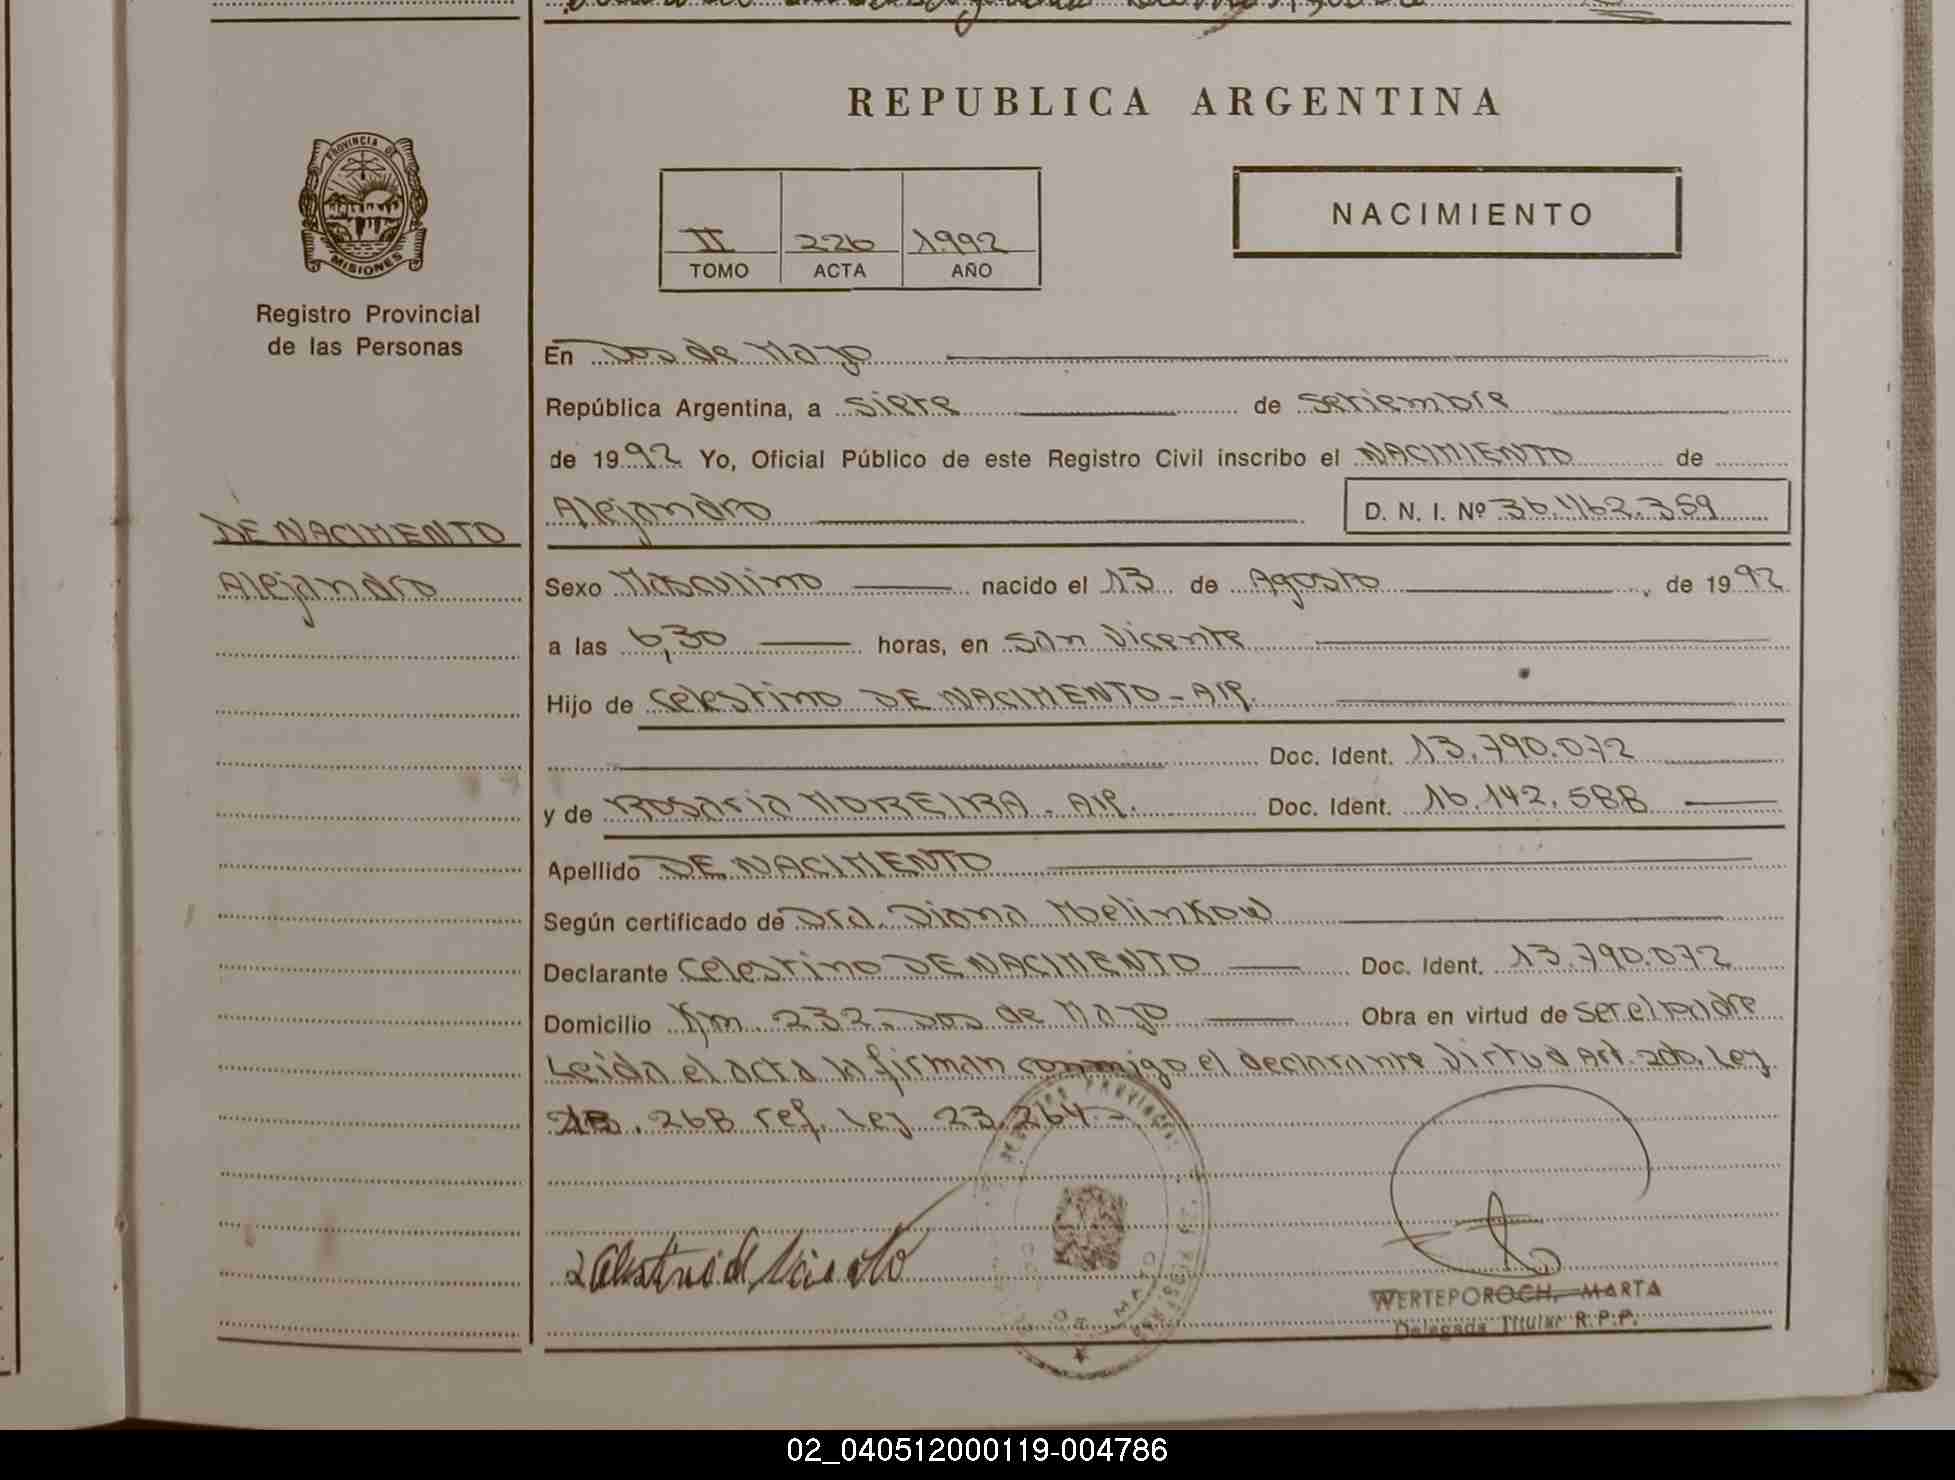 REPUBLICA ARGENTINA
PROVINCIA DE
MISIONES
Registro Provincial
de las Personas
II 226 1992
TOMO ACTA AÑO
NACIMIENTO
En Dos de Mayo
República Argentina, a siete de setiembre
de 1992 Yo, Oficial Público de este Registro Civil inscribo el NACIMIENTO de
Alejandro D. N. I. Nº 36.462.359
DE NACIMENTO
Alejandro
Sexo Masculino nacido el 13 de Agosto, de 1992
a las 6,30 horas, en San Vicente
Hijo de Celestino DE NACIMENTO - Arg.
Doc. Ident. 13.790.072
y de Rosaria MOREIRA - Arg. Doc. Ident. 16.142.588
Apellido DE NACIMENTO
Según certificado de Dra. Diana Melinkow
Declarante Celestino DE NACIMENTO Doc. Ident. 13.790.072
Domicilio Km. 232 - Dos de Mayo Obra en virtud de ser el padre
Leida el acta la firman conmigo el declarante virtud Art. 2do. Ley
18.268 ref. Ley 23.264.-
WERTEPOROCH, MARTA
Delegada Titular R.P.P.
02_040512000119-004786